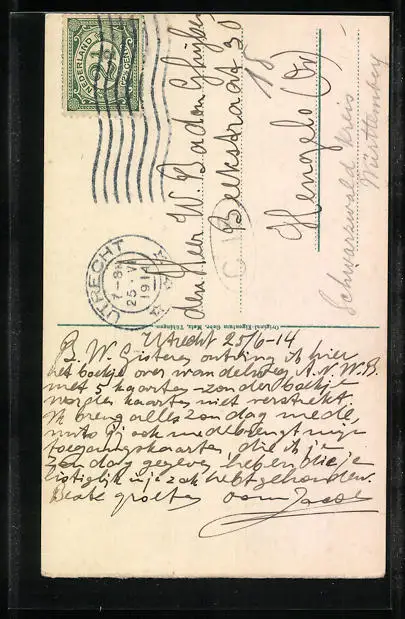 NEDERLAND
2½
CENT
UTRECHT
7-8N
25.VI
191
den Heer W. Badon Ghijben
Beekstraat 30
18
Hengelo (Ov)
Schwarzwald Kreis
Württemberg
Original-Eigentum Gebr. Metz, Tübingen
Utrecht 25/6-14
B. W. Gisteren ontving ik hier
het boekje over wandelweg A.N.W.B.
met 5 kaarten - zonder boekje
worden kaarten niet verstrekt.
Ik breng alles Zondag mede,
mits jij ook medebrengt mijn
toegangskaarten die ik je
Zondag gegeven heb en die je
in je zak hebt gehouden.
Beste groeten van